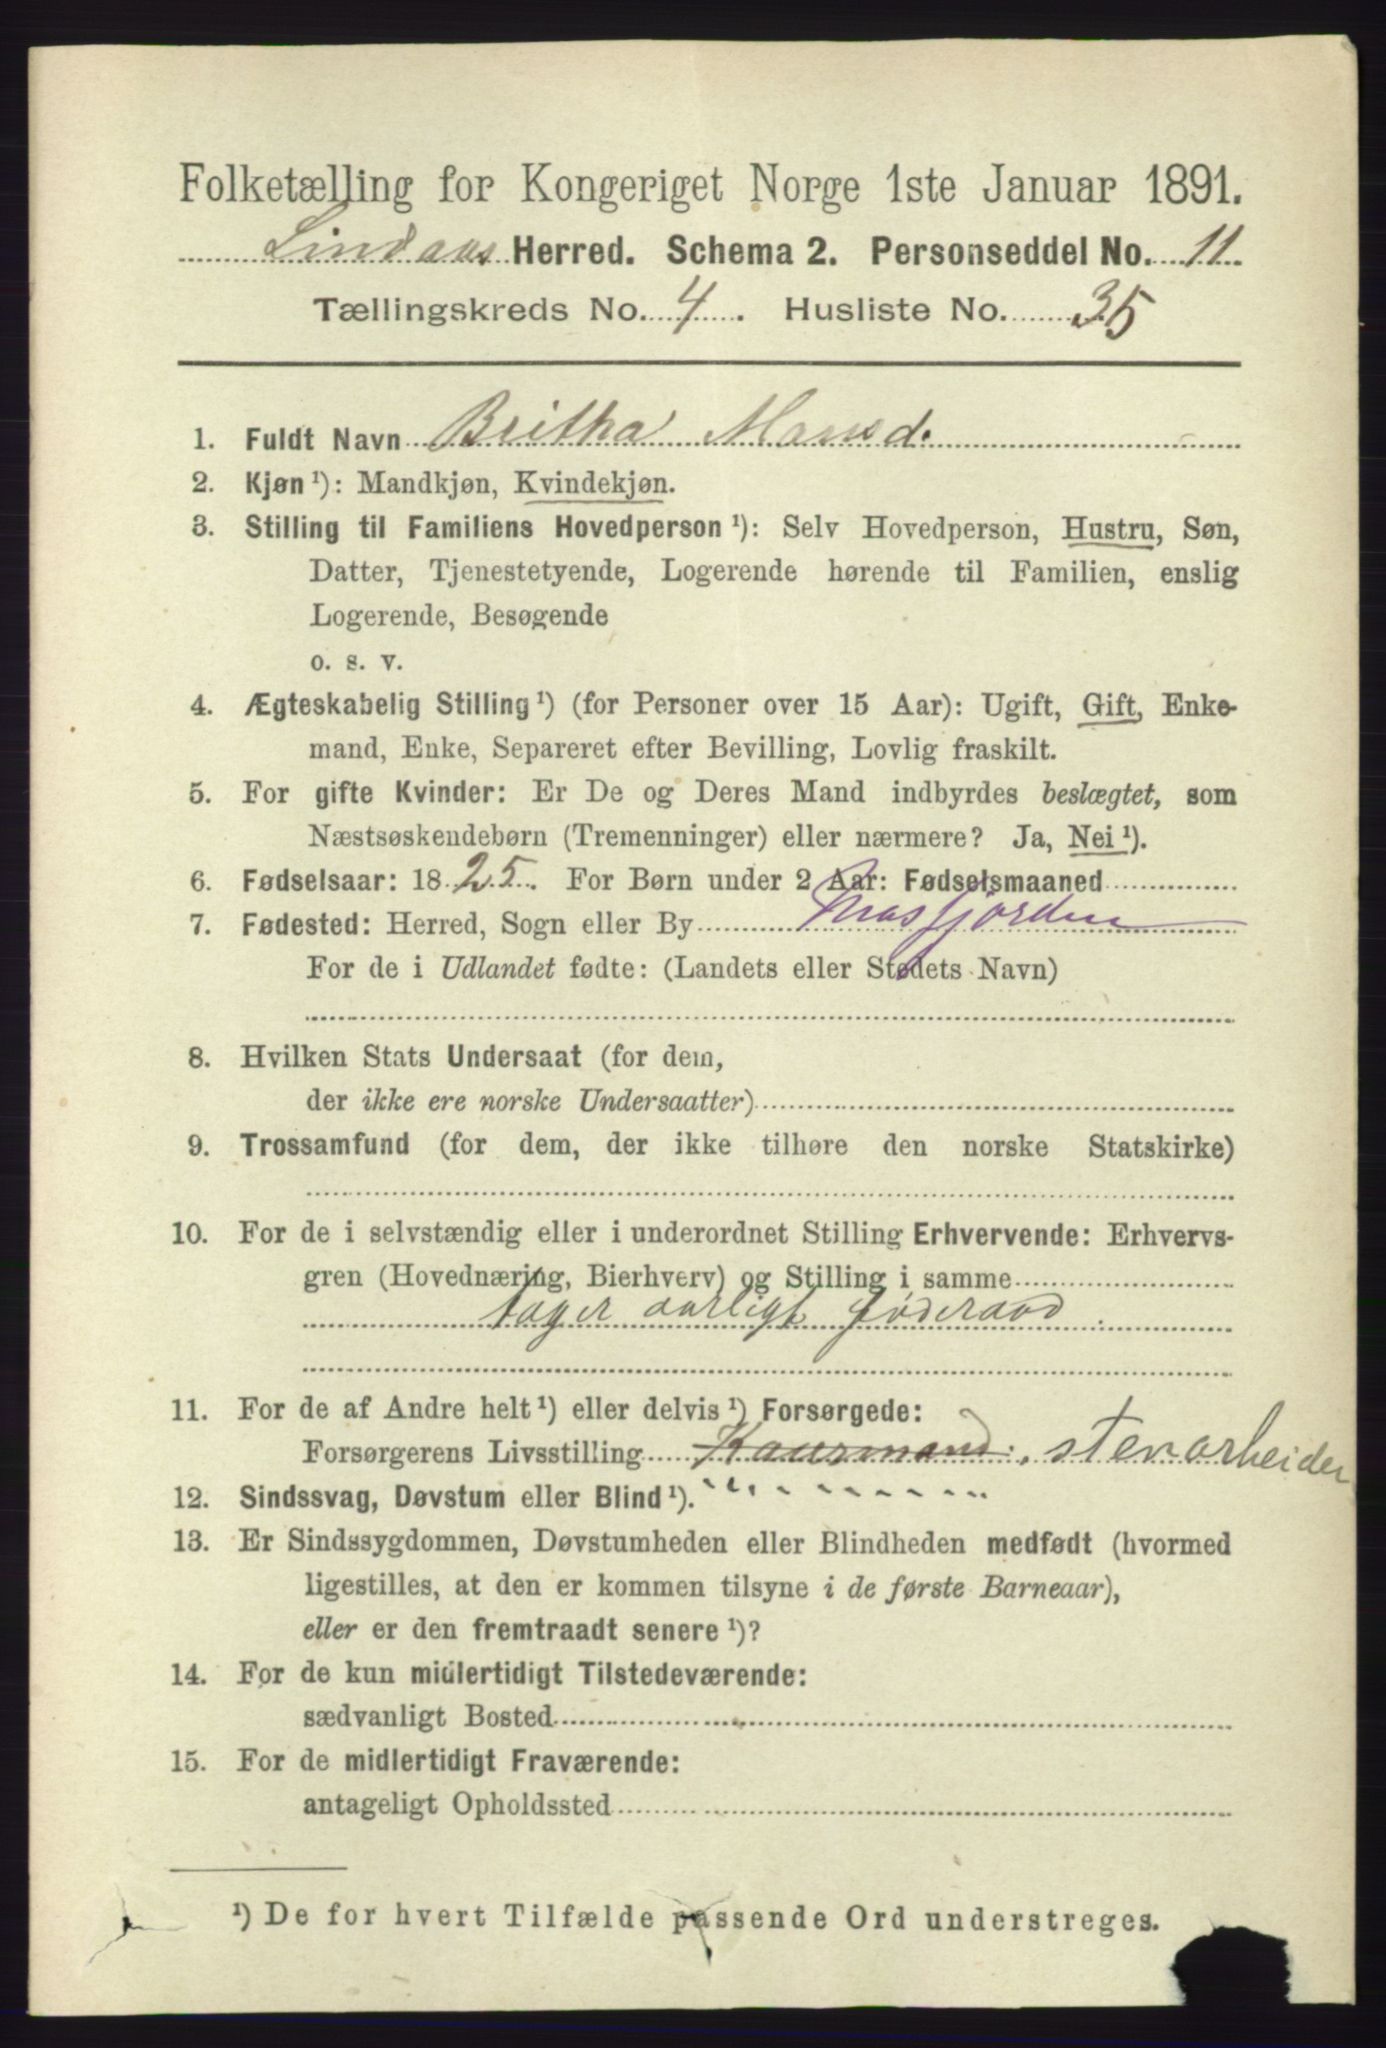 Folketælling for Kongeriget Norge 1ste Januar 1891.
Lindaas Herred. Schema 2. Personseddel No. 11
Tællingskreds No. 4. Husliste No. 35
1. Fuldt Navn Britha Mansd.
2. Kjøn ¹): Mandkjøn, Kvindekjøn.
3. Stilling til Familiens Hovedperson ¹): Selv Hovedperson, Hustru, Søn,
Datter, Tjenestetyende, Logerende hørende til Familien, enslig
Logerende, Besøgende
o. s. v.
4. Ægteskabelig Stilling ¹) (for Personer over 15 Aar): Ugift, Gift, Enke-
mand, Enke, Separeret efter Bevilling, Lovlig fraskilt.
5. For gifte Kvinder: Er De og Deres Mand indbyrdes beslægtet, som
Næstsøskendebørn (Tremenninger) eller nærmere? Ja, Nei ¹).
6. Fødselsaar: 1825. For Børn under 2 Aar: Fødselsmaaned
7. Fødested: Herred, Sogn eller By Masfjorden
For de i Udlandet fødte: (Landets eller Stedets Navn)
8. Hvilken Stats Undersaat (for dem,
der ikke ere norske Undersaatter)
9. Trossamfund (for dem, der ikke tilhøre den norske Statskirke)
10. For de i selvstændig eller i underordnet Stilling Erhvervende: Erhvervs-
gren (Hovednæring, Bierhverv) og Stilling i samme
tager aarligt føderaad.
11. For de af Andre helt ¹) eller delvis ¹) Forsørgede:
Forsørgerens Livsstilling Kaarmand. stenarbeider
12. Sindssvag, Døvstum eller Blind ¹).
13. Er Sindssygdommen, Døvstumheden eller Blindheden medfødt (hvormed
ligestilles, at den er kommen tilsyne i de første Barneaar),
eller er den fremtraadt senere ¹)?
14. For de kun midlertidigt Tilstedeværende:
sædvanligt Bosted
15. For de midlertidigt Fraværende:
antageligt Opholdssted
¹) De for hvert Tilfælde passende Ord understreges.